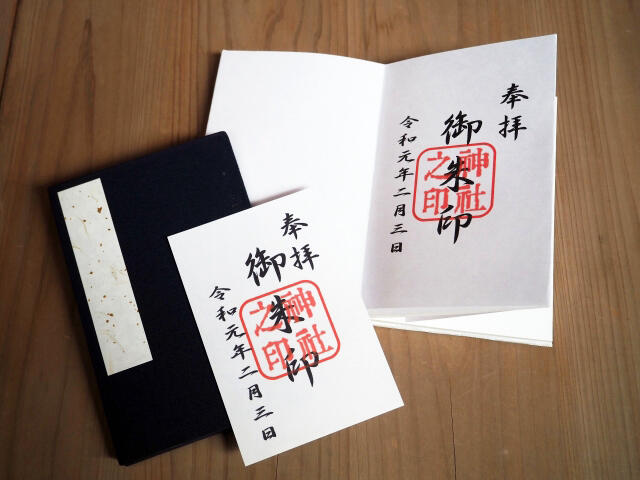 奉拝
御朱印
神社之印
令和元年二月三日
奉拝
御朱印
神社之印
令和元年二月三日